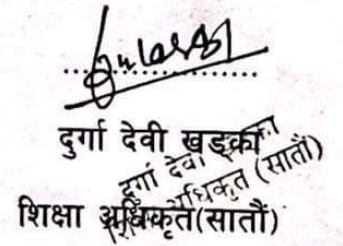 दुर्गा देवी खड्का
दुर्गा देवी
अधिकृत (सातौं)
शिक्षा अधिकृत(सातौं)